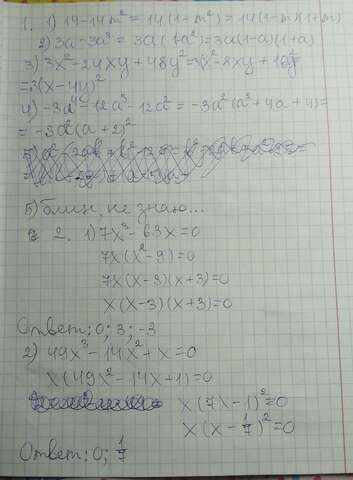 1. 1) 14-14m² = 14(1-m²) = 14(1-m)(1+m)
2) 3a-3a³ = 3a(1-a²)=3a(1-a)(1+a)
3) 3x²-24xy+48y²=3(x²-8xy+16y²
=3(x-4y)²
4) -3a⁴-12a³-12a² = -3a²(a²+4a+4)=
= -3a²(a+2)²
5) блин, не знаю...
2. 1) 7x³-63x=0
7x(x²-9)=0
7x(x-3)(x+3)=0
x(x-3)(x+3)=0
Ответ: 0; 3; -3
2) 49x³-14x²+x=0
x(49x²-14x+1)=0
x(7x-1)²=0
x(x-1/7)²=0
Ответ: 0; 1/7